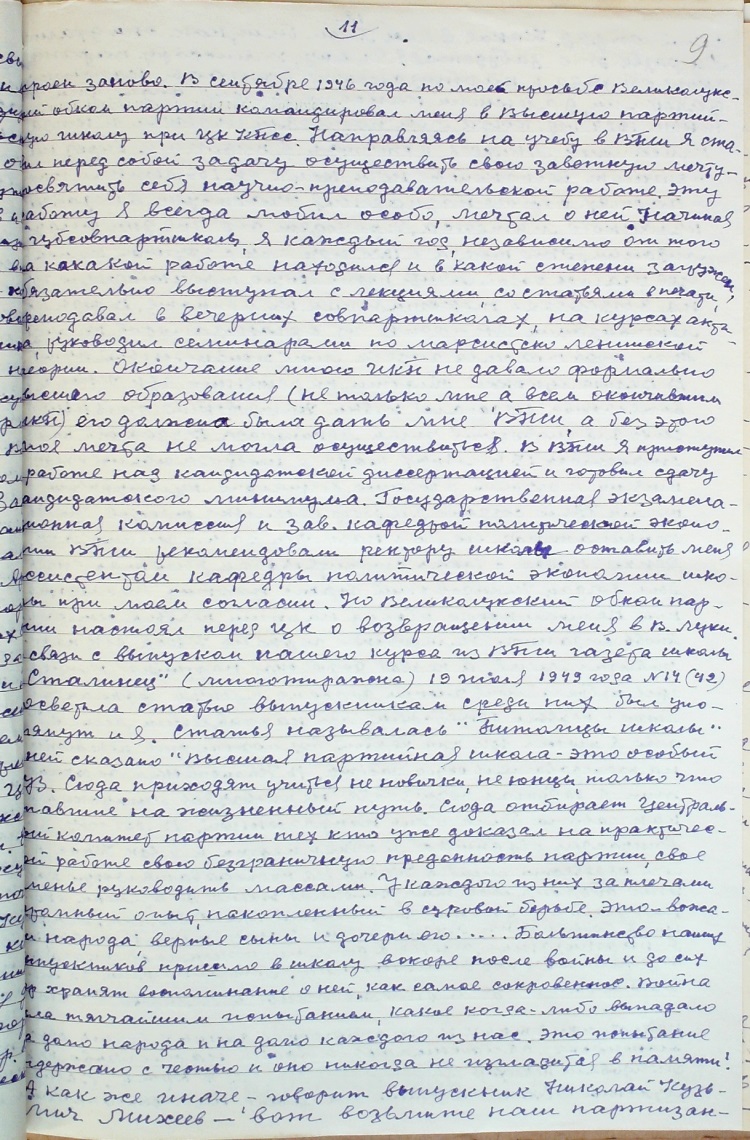 11
9
строен заново. В сентябре 1946 года по моей просьбе Великолукс-
кий обком партии командировал меня в Высшую партий-
скую школу при ЦК КПСС. Направляясь на учебу в ВПШ я ста-
вил перед собой задачу осуществить свою заветную мечту-
посвятить себя научно-преподавательской работе. Эту
работу я всегда любил особо, мечтал о ней. Начиная
губсовпартшколы, я каждый год, независимо от того
на какой работе находился и в какой степени загружен,
обязательно выступал с лекциями, со статьями в печати,
преподавал в вечерних совпартшколах, на курсах акти-
ва, руководил семинарами по марксистско ленинской
теории. Окончание мною ИКП не давало формально
высшего образования (не только мне а всем окончившим
ИКП) его должна была дать мне ВПШ, а без этого
моя мечта не могла осуществиться. В ВПШ я приступил
к работе над кандидатской диссертацией и готовил сдачу
кандидатского минимума. Государственная экзамена-
ционная комиссия и зав. кафедрой политической эконо-
мии ВПШ рекомендовали ректору школы оставить меня
ассистентом кафедры политической экономии шко-
лы при моем согласии. Но Великолукский обком пар-
тии настоял перед ЦК о возвращении меня в В. Луки.
В связи с выпуском нашего курса из ВПШ газета школы
"Сталинец" (многотиражка) 19 июля 1949 года N14 (42)
осветила статью выпускникам среди них был упо-
мянут и я. Статья называлась "Питомцы школы"
в ней сказано "Высшая партийная школа - это особый
ВУЗ. Сюда приходят учиться не новички, не юнцы, только что
вставшие на жизненный путь. Сюда отбирает Централь-
ный комитет партии тех кто уже доказал на практичес-
кой работе свою безграничную преданность партии, свое
уменье руководить массами. У каждого из них за плечами
огромный опыт, накопленный в суровой борьбе. Это - вожа-
ки народа, верные сыны и дочери его..... Большинство наших
выпускников пришло в школу вскоре после войны и до сих
пор хранят воспоминание о ней, как самое сокровенное. Война
была тягчайшим испытанием, какое когда-либо выпадало
на долю народа и на долю каждого из нас. Это испытание
выдержано с честью и оно никогда не изгладится в памяти!
А как же иначе - говорит выпускник Николай Кузь-
мич Михеев - вот возьмите наш партизан-